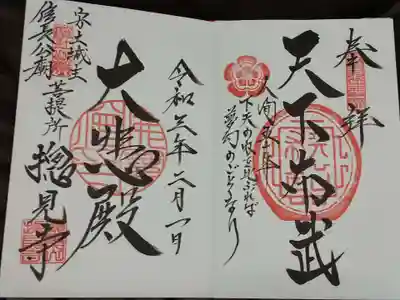 奉拝
天下布武
人間五十年
下天の内をくらぶれば
夢幻のごとくなり
令和六年二月一日
大悲殿
安土城主
信長公廟 菩提所
摠見寺